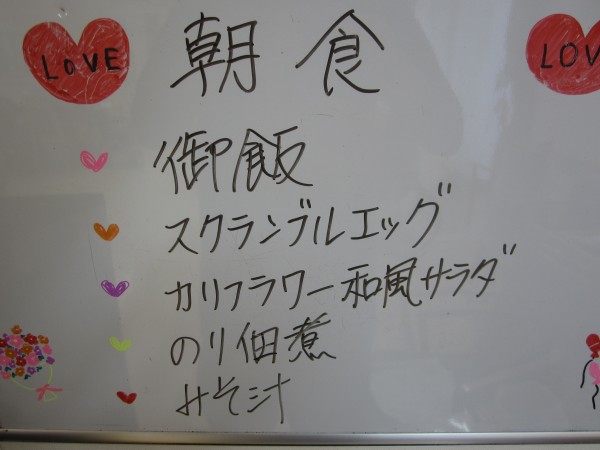 LOVE 朝食 LOV
御飯
スクランブルエッグ
カリフラワー和風サラダ
のり佃煮
みそ汁